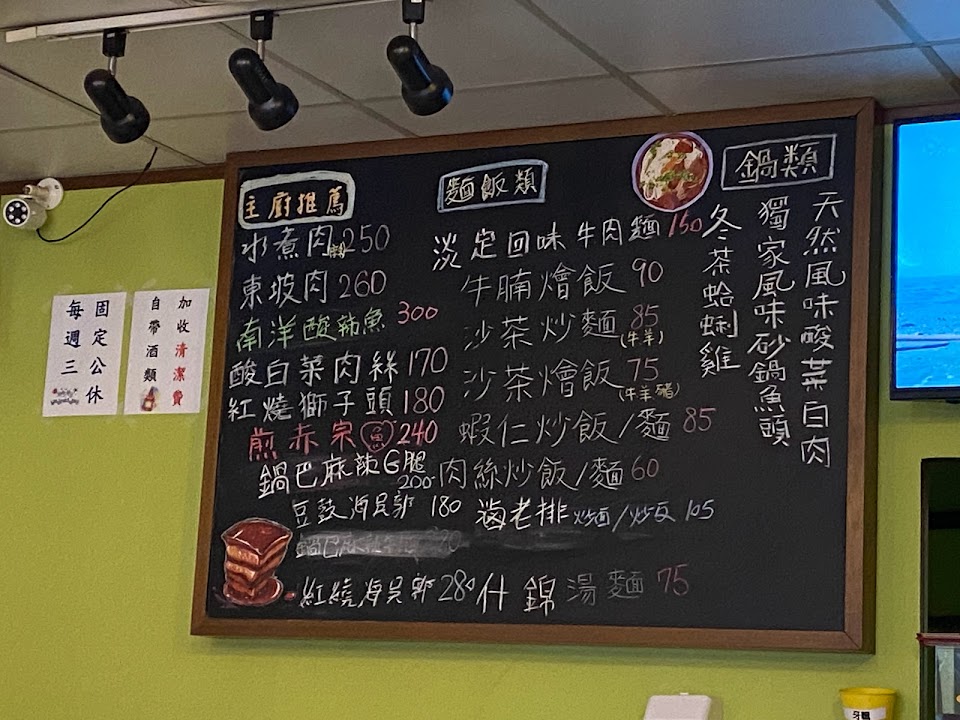 主廚推薦
水煮肉 250
東坡肉 260
南洋酸辣魚 300
酸白菜肉絲 170
紅燒獅子頭 180
煎赤宗魚 240
鍋巴麻辣G腿 200
豆鼓海昆郭 180
紅燒海吳郭 280
麵飯類
淡定回味牛肉麵 150
牛腩燴飯 90
沙茶炒麵 85
(牛羊)
沙茶燴飯 75
(牛羊豬)
蝦仁炒飯/麵 85
肉絲炒飯/麵 60
海老排 炒麵/炒飯 105
什錦湯麵 75
鍋類
天然風味酸菜白肉
獨家風味砂鍋魚頭
冬茶蛤蜊雞
固定公休
每週三
加收清潔費
自帶酒類
牙籤